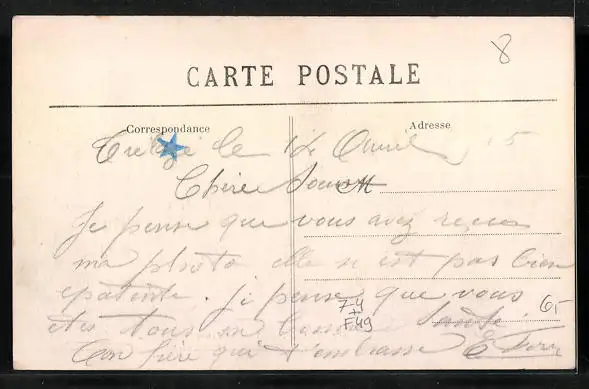 8
CARTE POSTALE
Correspondance
Adresse
Trélazé le 12 Avril 15
Chère Soeur
Je pense que vous avez reçu
ma photo elle n est pas bien
epatente. je pense que vous
etes tous en bonne santé.
7-4
+
F49
65
Ton frère qui t'embrasse